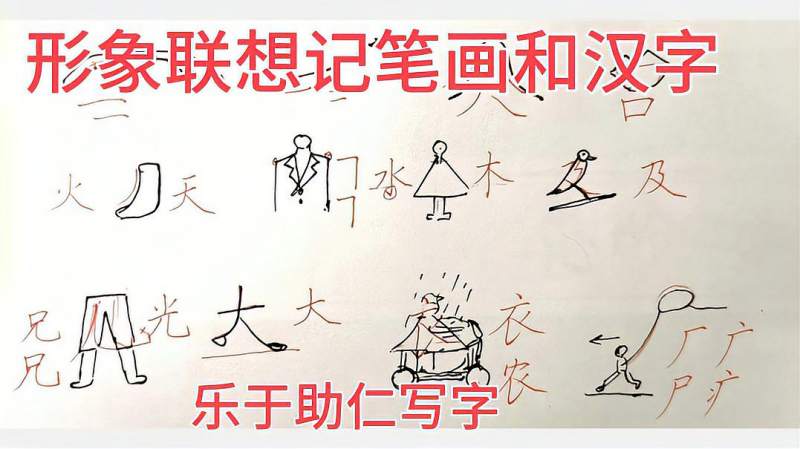 形象联想记笔画和汉字
火 天 水 木 及
兄 光 大 大 衣 厂 广
兄 农 尸 疒
乐于助仁写字